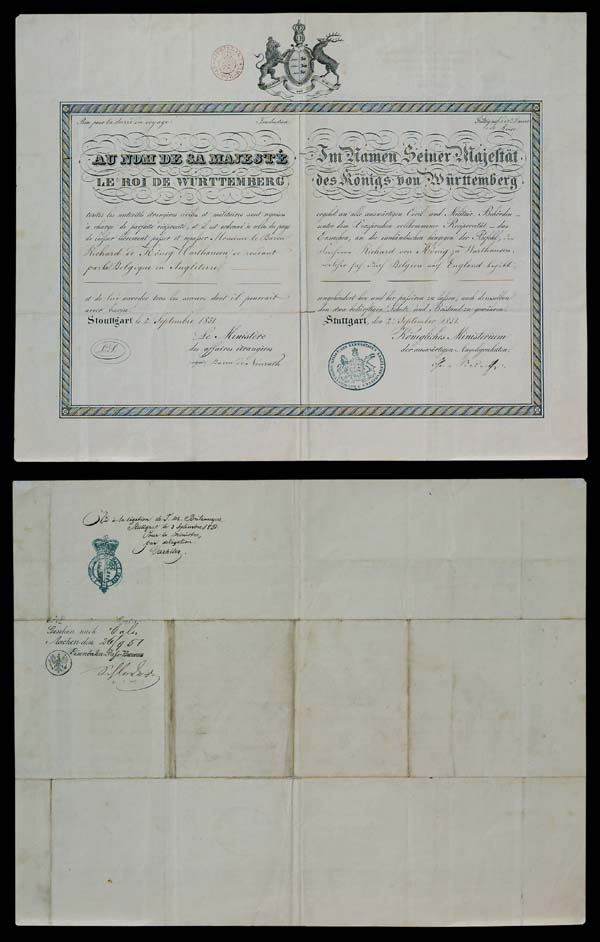 Bon pour la durée du voyage.
Traduction.
AU NOM DE SA MAJESTÉ
LE ROI DE WURTTEMBERG,
toutes les autorités étrangères civiles et militaires sont requises
à charge de parfaite réciprocité, et il est ordonné à celles du pays
de laisser librement passer et repasser Monsieur le Baron
Richard de König Warthausen se rendant
par la Belgique en Angleterre,
et de lui accorder tous les secours dont il pourrait
avoir besoin.
Stouttgart le 2. Septembre 1851.
Le Ministère
des affaires étrangères
Baron de Neurath
L.S.
Im Namen Seiner Majestät
des Königs von Württemberg
ergeht an alle auswärtigen Civil und Militär Behörden
unter dem Versprechen vollkommener Reciprocität das
Ersuchen, an die einländischen hingegen der Befehl,
Freiherrn Richard von König zu Warthausen,
welcher sich durch Belgien nach England begibt
ungehindert hin und her passiren zu lassen, auch demselben
den etwa bedürftigen Schutz und Beistand zu gewähren.
Stuttgart, den 2. September 1851.
Königliches Ministerium
der auswärtigen Angelegenheiten.
Vu à la légation de S. M. Britannique
Stuttgart le 3 Septembre 1851.
Pour le Ministre,
par délégation
Gesehen nach
Aachen den 26/9 51
Eisenbahn Pass-Bureau